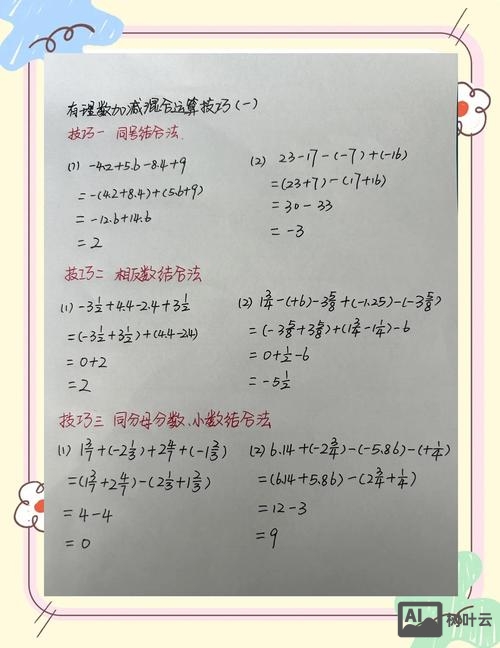 有理数加减混合运算技巧(一)
技巧一 同号结合法.
(1) -4.2+5.6-8.4+9
=-(4.2+8.4)+(5.6+9)
=-12.6+14.6
=2
(2) 23-17-(-7)+(-16)
=(23+7)-(17+16)
=30-33
=-3
技巧二 相反数结合法
(1) -3 1/2+4.4-2.4+3 1/2
=(-3 1/2+3 1/2)+(4.4-2.4)
=0+2
=2
(2) 1 3/4-(+6)-3 5/8+(-1.25)-(-3 5/8)
=(-3 5/8+3 5/8)+(1 3/4-1 1/4)-6
=0+1/2-6
=-5 1/2
技巧三 同分母分数、小数结合法
(1) 1 3/7+(-2 1/3)+2 4/7+(-1 2/3)
=(1 3/7+2 4/7)-(2 1/3+1 2/3)
=4-4
=0
(2) 6.14+(-2 3/4)-(-5.86)-(+1/4)
=(6.14+5.86)-(2 3/4+1/4)
=12-3
=9
AI 树叶云